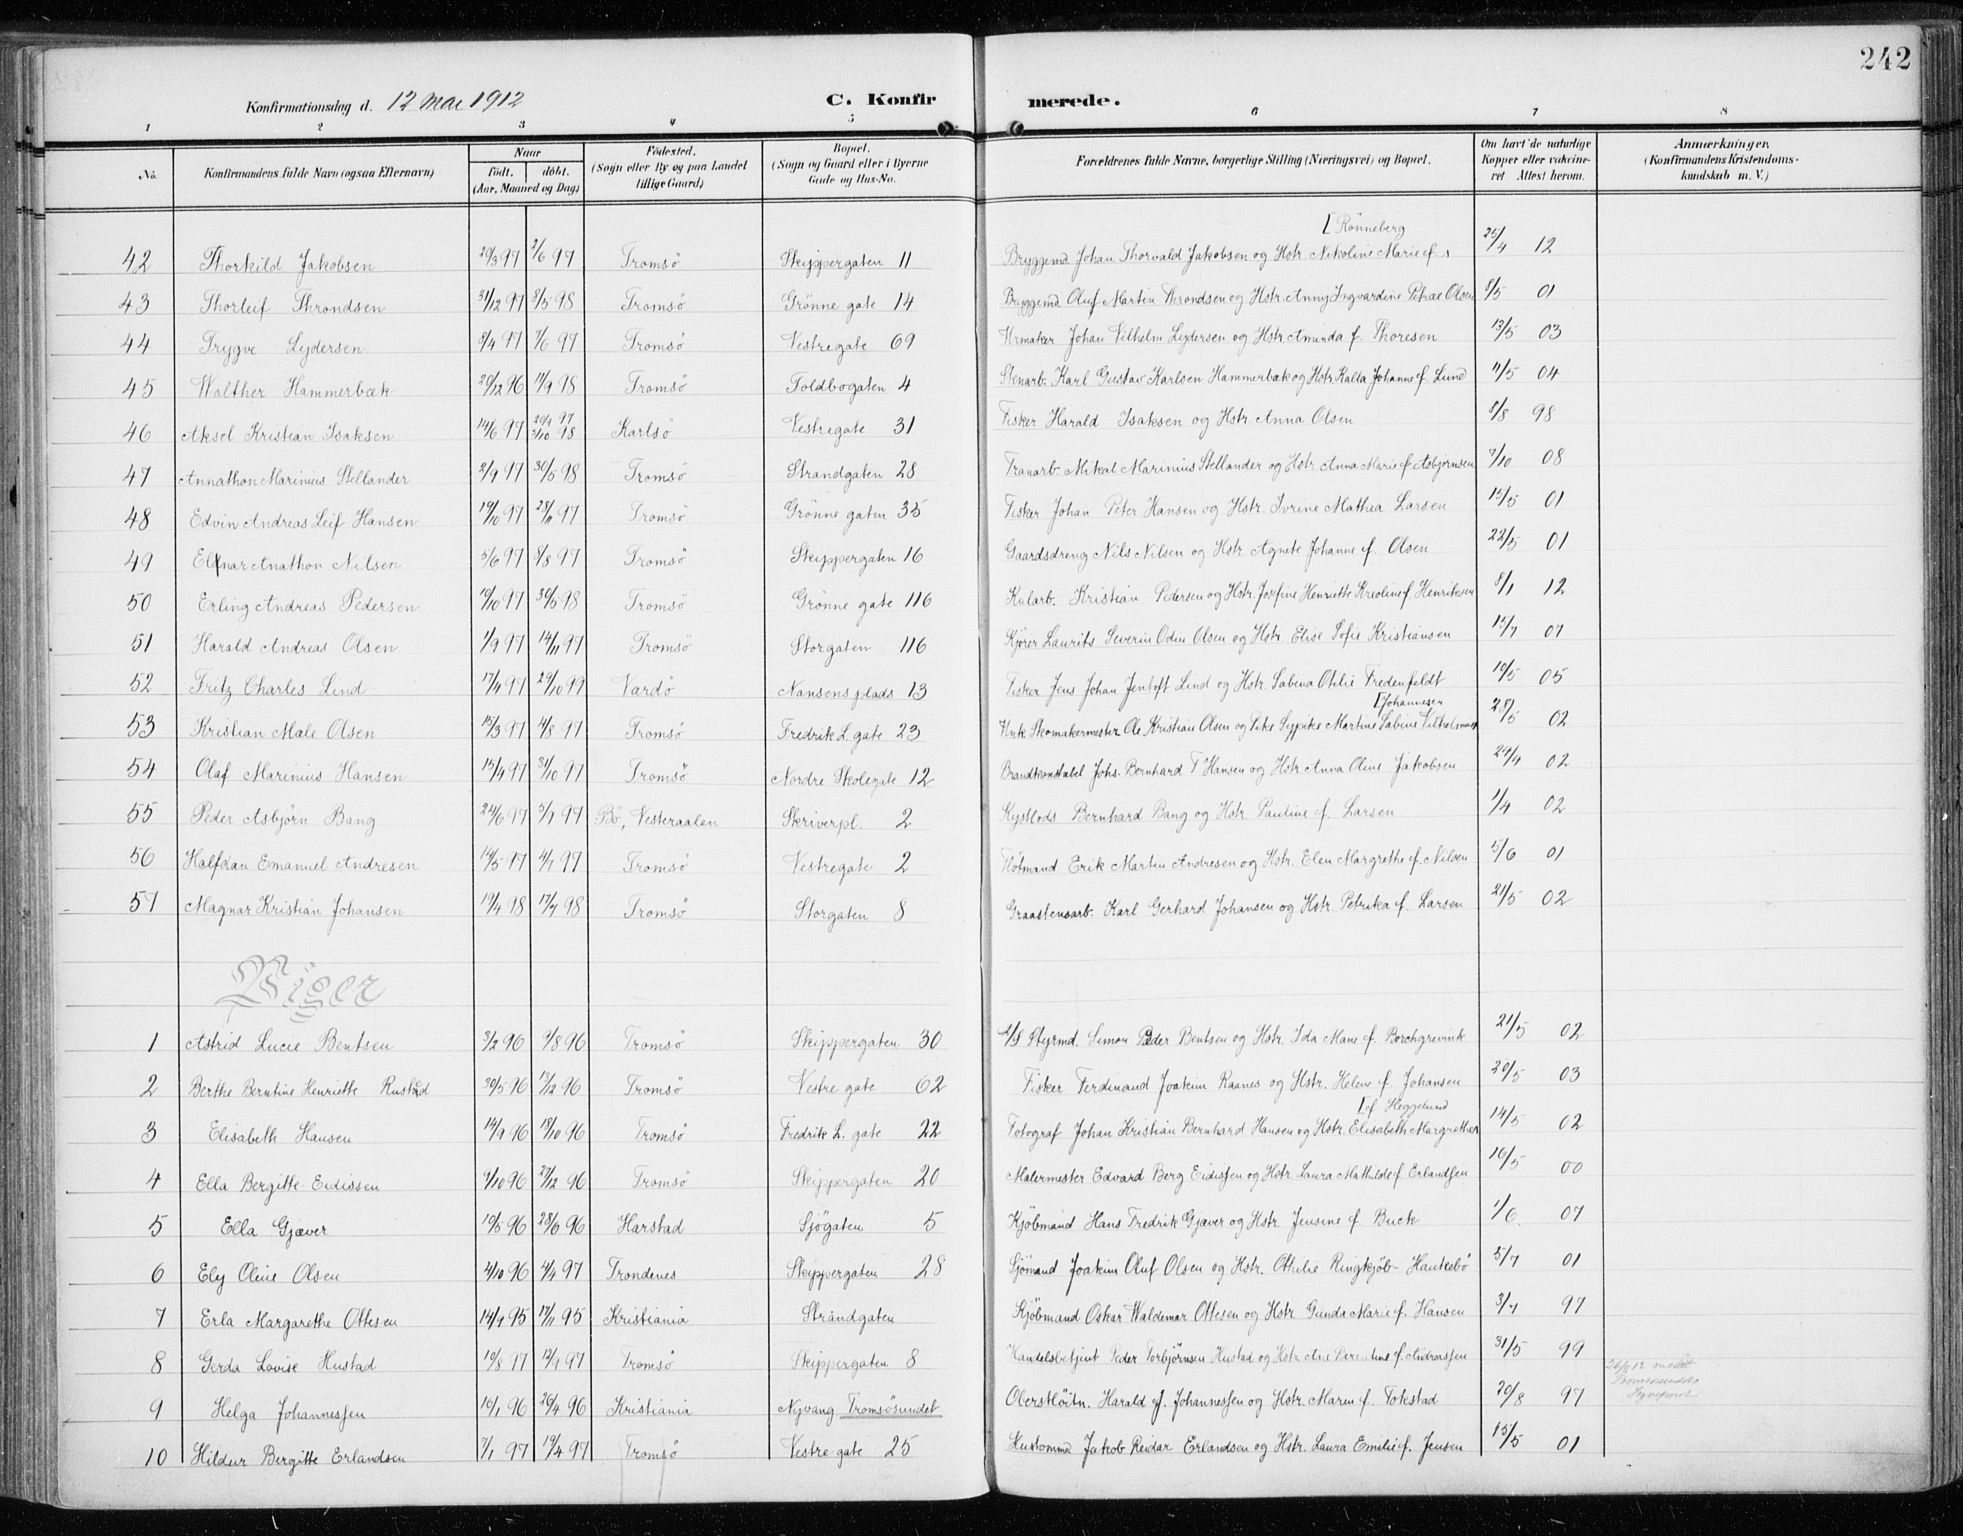 242
Konfirmationsdag d. 12 mai 1912 C. Konfirmerede.
1 2 3 4 5 6 7 8
No. Konfirmandens fulde Navn (ogsaa Efternavn) Naar født. døbt. (Aar, Maaned og Dag) Fødested. (Sogn eller By og paa Landet tillige Gaard) Bopæl. (Sogn og Gaard eller i Byerne Gade og Hus-No. Forældrenes fulde Navne, borgerlige Stilling (Næringsvei) og Bopæl. Om havt de naturlige Kopper eller vakcineret Attest herom. Anmærkninger. (Konfirmandens Kristendomskundskab m. V.)
[Rönneberg
42 Thorkild Jakobsen 20/3 97 2/6 97 Tromsö Skippergaten 11 Bryggemd. Johan Thorvald Jakobsen og Hstr. Nikoline Marie f. 25/4 12
43 Thorleif Throndsen 31/12 97 8/5 98 Tromsö Grönne gate 14 Bryggemd. Oluf Martin Throndsen og Hstr. Anny Ingvardine Petrae Olsen 8/5 01
44 Trygve Lydersen 8/4 97 7/6 97 Tromsö Vestregate 69 Urmaker Johan Vilhelm Lydersen og Hstr. Aminda f. Thoresen 13/5 03
45 Walther Hammerbæk 20/12 96 11/9 98 Tromsö Toldbogaten 4 Stenarb. Karl Gustav Karlsen Hammerbæk og Hstr. Kalla Johanne f. Lund 11/5 04
46 Aksel Kristian Isaksen 14/6 97 98 Karlsö Vestregate 31 Fisker Harald Isaksen og Hstr. Anna Olsen 8/8 98
47 Annathon Marinius Stellander 2/9 97 30/5 98 Tromsö Strandgaten 28 Tranarb. Mikal Marinius Stellander og Hstr. Anna Marie f. Asbjörnsen 7/10 08
48 Edvin Andreas Leif Hansen 19/10 97 28/11 97 Tromsö Grönne gaten 35 Fisker Johan Peter Hansen og Hstr. Ivrine Mathea Larsen 15/5 01
49 Anathon Nilsen 5/6 97 8/8 97 Tromsö Skippergaten 16 Gaardsdreng Nils Nilsen og Hstr. Agnete Johanne f. Olsen 22/5 01
50 Erling Andreas Pedersen 19/10 97 30/5 98 Tromsö Grönne gate 116 Kularb. Kristian Pedersen og Hstr. Josefine Henriette Kreoline f. Henriksen 8/1 12
51 Harald Andreas Olsen 1/9 97 14/11 97 Tromsö Storgaten 116 Kjörer Laurits Severin Odin Olsen og Hstr. Elise Sofie Kristiansen 15/7 07
52 Fritz Charles Lind 17/4 97 29/10 99 Vardö Nansens plads 13 Fisker Jens Johan Jentoft Lind og Hstr. Sabina Otilie Fredenfeldt 19/5 05
[Johannesen
53 Kristian Male Olsen 15/3 97 4/8 97 Tromsö Fredrik L. gate 23 Unk Skomakermester Ole Kristian Olsen og Pike Sypike Martine Sabine 28/5 02
54 Olaf Marinius Hansen 15/4 97 31/10 97 Tromsö Nordre Skolegate 12 Brandkonstabel Johs. Bernhard T Hansen og Hstr. Anna Oline Jakobsen 24/4 02
55 Peder Asbjörn Bang 24/6 97 5/9 97 Bö, Vesteraalen Skriverpl. 2 Kystlods Bernhard Bang og Hstr. Pauline f. Larsen 1/4 02
56 Halfdan Emanuel Andresen 14/5 97 4/7 97 Tromsö Vestregate 2 Flötmand Erik Martin Andresen og Hstr. Elen Margrethe f. Nilsen 5/6 01
57 Magnar Kristian Johansen 19/4 98 17/7 98 Tromsö Storgaten 8 Graastensarb. Karl Gerhard Johansen og Hstr. Petrika f. Larsen 21/5 02
Piger
1 Astrid Lucie Bentsen 3/2 96 9/8 96 Tromsö Skippergaten 30 Styrmd. Simon Peder Bentsen og Hstr. Ida Marie f. Borchgrevink 21/5 02
2 Berthe Berntine Henriette 30/5 96 13/12 96 Tromsö Vestre gate 62 Fisker Ferdinand Joakim Raanes og Hstr. Helene f. Johansen 20/5 03
[f. Heggelund
3 Elisabeth Hansen 14/9 96 18/10 96 Tromsö Fredrik L. gate 22 Fotograf Johan Kristian Bernhard Hansen og Hstr. Elisabeth Margrethe 14/5 02
4 Ella Bergitte Eidissen 9/10 96 27/12 96 Tromsö Skippergaten 20 Malermester Edvard Berg Eidissen og Hstr. Laura Mathilde f. Erlandsen 16/5 00
5 Ella Gjæver 19/5 96 28/6 96 Harstad Sjögaten 5 Kjöbmand Hans Fredrik Gjæver og Hstr. Jensine f. Buck 1/6 07
6 Ely Oline Olsen 4/10 96 4/4 97 Trondenes Skippergaten 28 Sjömand Joakim Oluf Olsen og Hstr. Othilie Ringkjöb-Haukebö 5/7 01
7 Erla Margarethe Ottesen 14/9 95 17/11 95 Kristiania Strandgaten Kjöbmand Oskar Waldemar Ottesen og Hstr. Gunda Marie f. Hansen 3/7 97
8 Gerda Lovise Hustad 10/8 97 12/9 97 Tromsö Skippergaten 8 Handelsbetjent Peder Torbjörnsen Hustad og Hstr. Ane Berentine f. Andreassen 31/5 99
9 Helga Johannessen 16/1 96 26/4 96 Kristiania Nyvang Tromsösundet Oberstlöitn. Harald Johannessen og Hstr. Maren f. Tokstad 20/8 97
10 Hildur Bergitte Erlandsen 7/1 97 19/4 97 Tromsö Vestre gate 25 Hustömmd. Jakob Reidar Erlandsen og Hstr. Laura Emilie f. Jensen 15/5 01